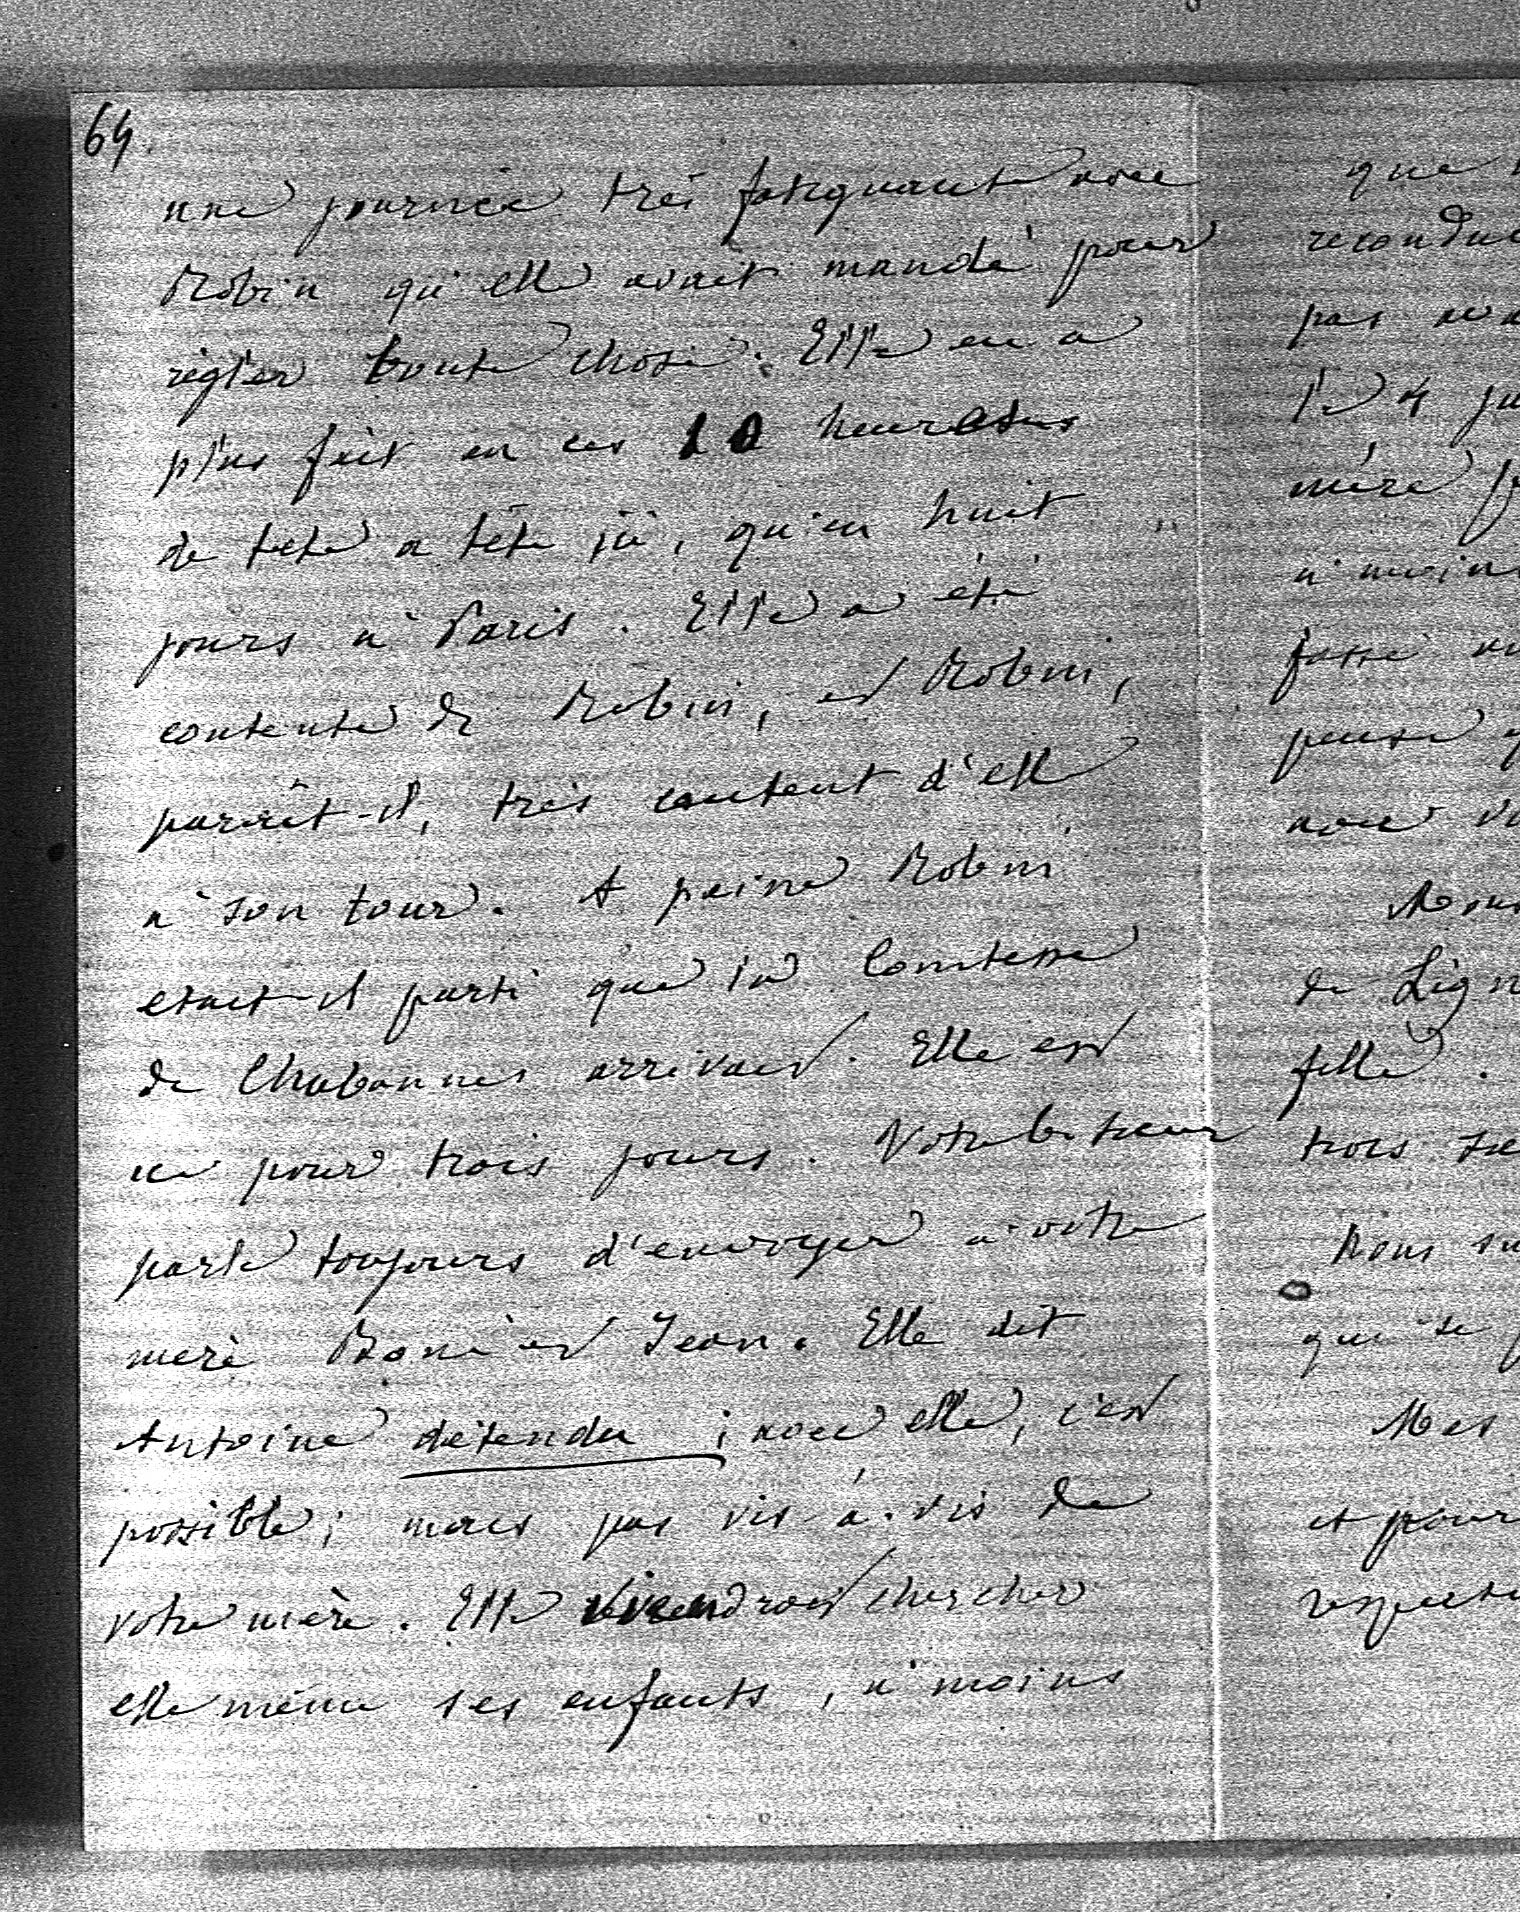 64.
une journée très fatiguante avec
Robin qu'elle avait mandé pour
règler toute chose. Elle en a
plus fait en ces 10 heures
de tete a tête ici, qu'en huit
jours à Paris. Elle a été
contente de Robin, et Robin,
parait-il, très content d'elle
à son tour. A peine Robin
etait-il parti que la Comtesse
de Chabannes arrivait. Elle est
ici pour trois jours. Votre
parle toujours d'envoyer à votre
mère et Jean. Elle dit
Antoine détendu ; avec elle, c'est
possible ; mais pas vis-à-vis de
votre mère. Elle viendrait chercher
elle même ses enfants, à moins
que
pas
le 4
mère
à moins
fasse
pense
avec
de Lign
fille.
trois
Nous
qui se
Mes
et pour